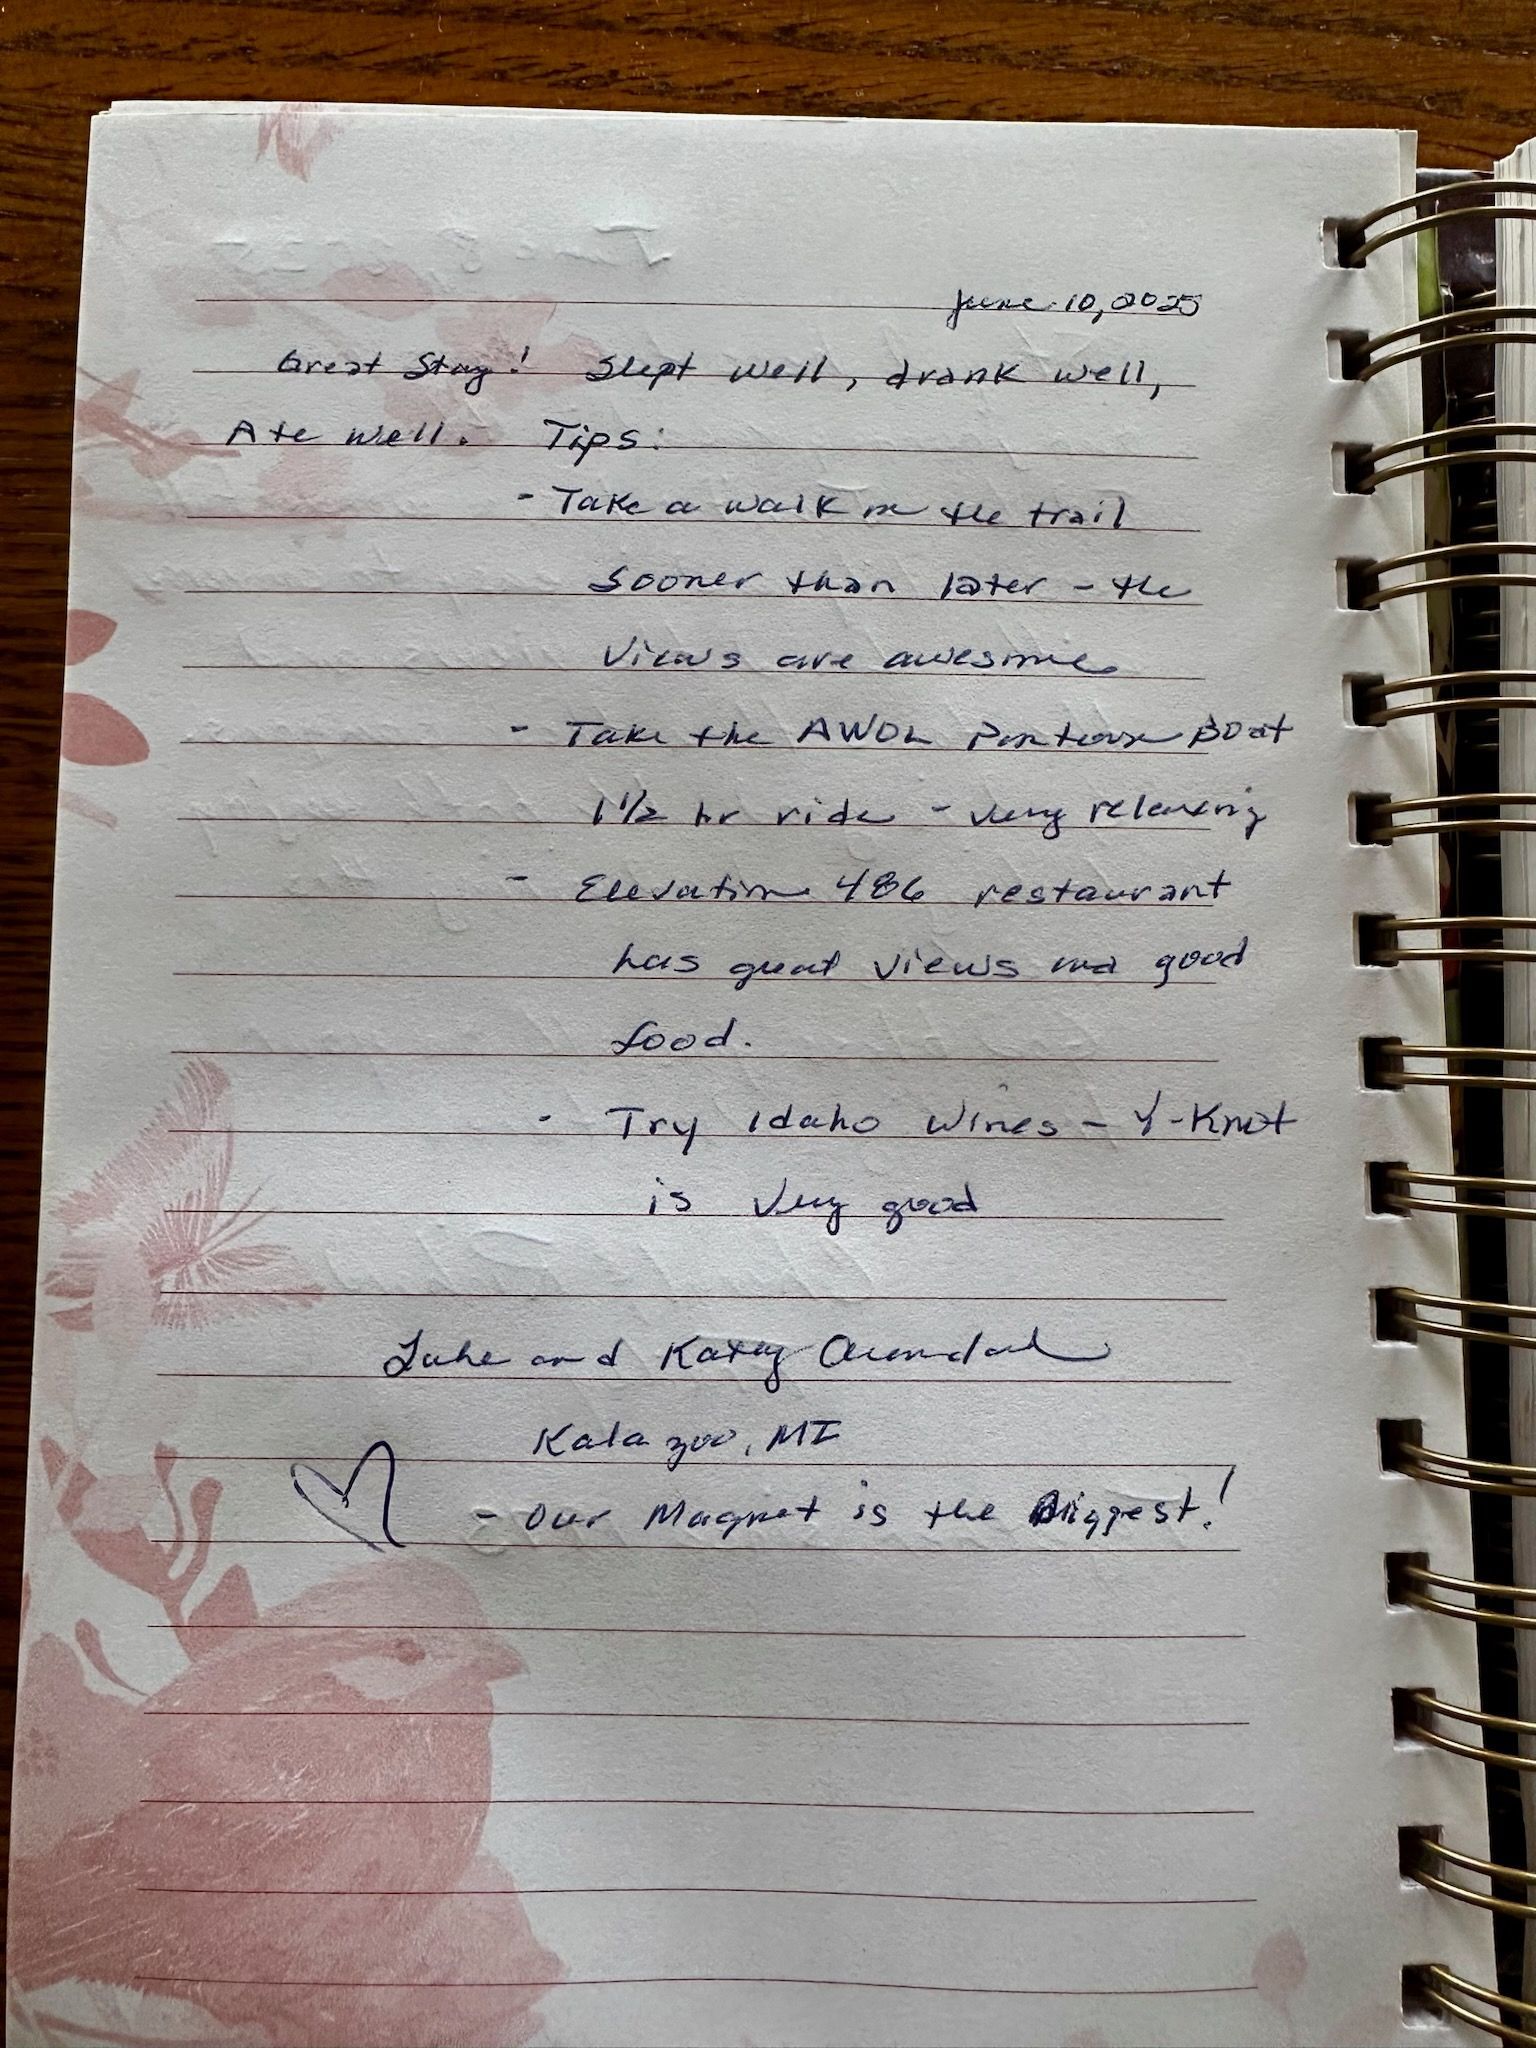 June 10, 2025
Great Stay! Slept well, drank well,
Ate well. Tips:
- Take a walk on the trail
sooner than later - the
views are awesome
- Take the AWOL Pontoon Boat
1 1/2 hr ride - very relaxing
- Elevation 486 restaurant
has great views and good
food.
- Try Idaho Wines - Y-Knot
is very good
and Katy
Kalazoo, MI
- Our Magnet is the Biggest!